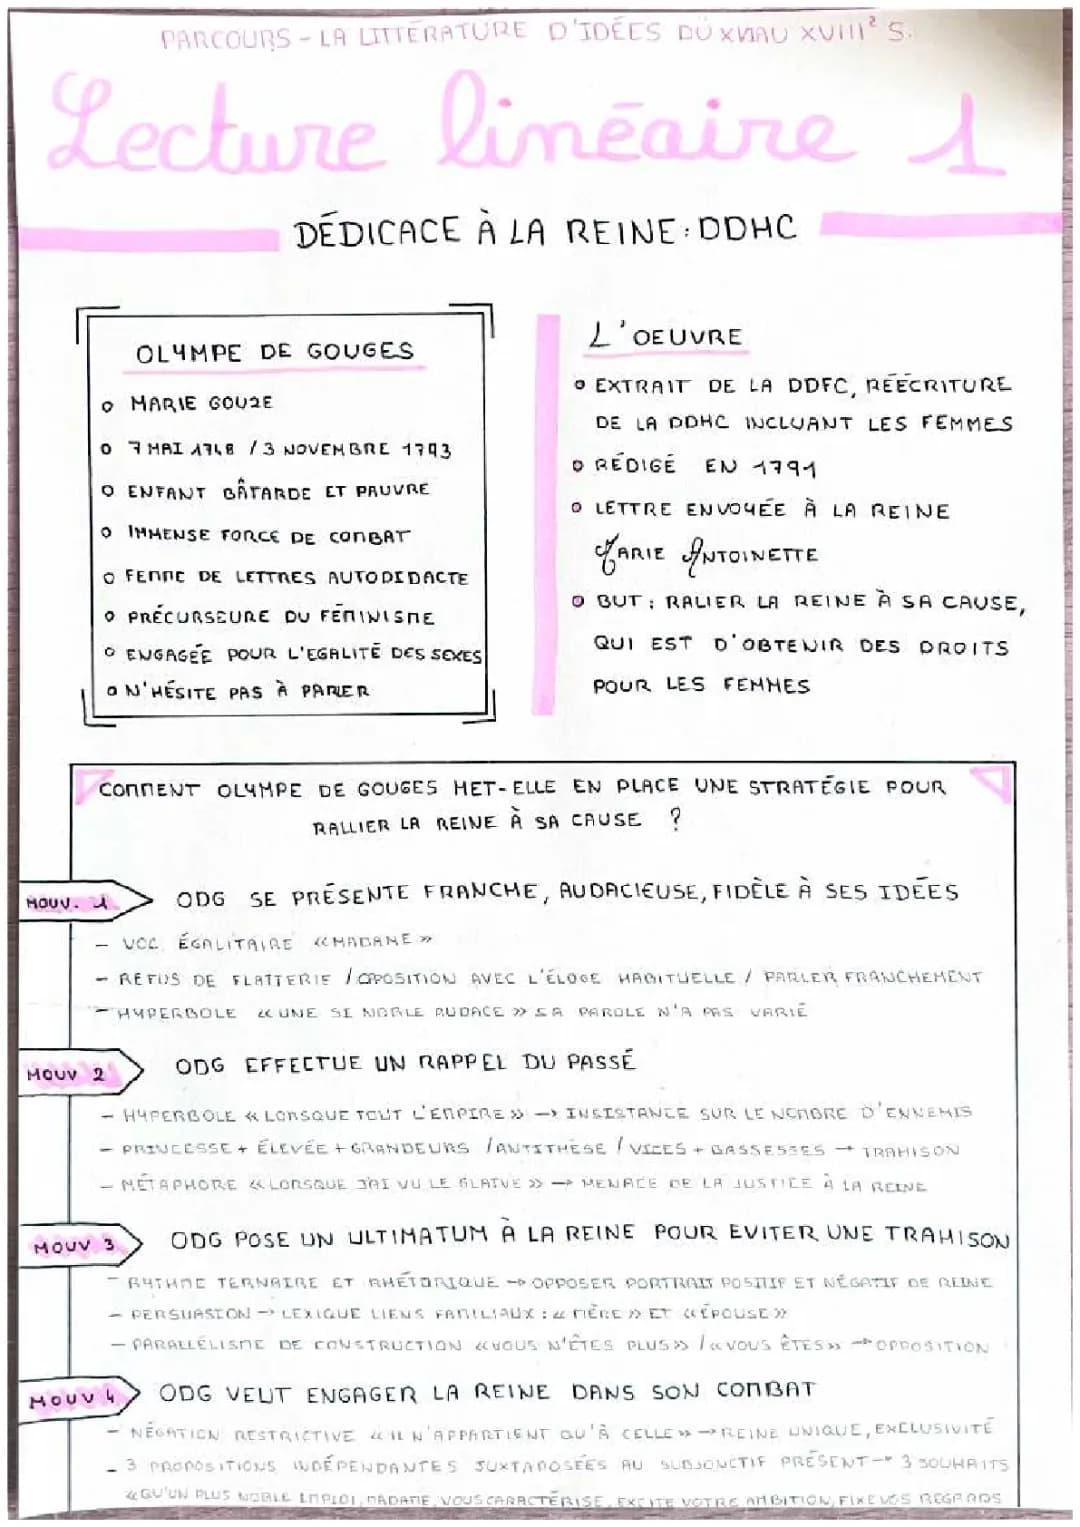 PARCOURS - LA LITTÉRATURE D'IDÉES DU XVI AU XVIII² S.
Lecture linéaire 1
DÉDICACE À LA REINE : DDHC
OLYMPE DE GOUGES
o MARIE GOUZE
o 7 MAI 1748 / 3 NOVEMBRE 1793
o ENFANT BÂTARDE ET PAUVRE
o IMMENSE FORCE DE COMBAT
o FEMME DE LETTRES AUTODIDACTE
o PRÉCURSEURE DU FÉMINISME
o ENGAGÉE POUR L'EGALITÉ DES SEXES
o N'HÉSITE PAS À PARLER
L'OEUVRE
o EXTRAIT DE LA DDFC, RÉÉCRITURE
DE LA DDHC INCLUANT LES FEMMES
o RÉDIGÉ EN 1791
o LETTRE ENVOYÉE À LA REINE
MARIE ANTOINETTE
o BUT : RALIER LA REINE À SA CAUSE,
QUI EST D'OBTENIR DES DROITS
POUR LES FEMMES
COMMENT OLYMPE DE GOUGES MET-ELLE EN PLACE UNE STRATÉGIE POUR
RALLIER LA REINE À SA CAUSE ?
MOUV. 1
ODG SE PRÉSENTE FRANCHE, AUDACIEUSE, FIDÈLE À SES IDÉES
- VOC. ÉGALITAIRE « MADAME »
- REFUS DE FLATTERIE / OPPOSITION AVEC L'ÉLOGE HABITUELLE / PARLER FRANCHEMENT
- HYPERBOLE « UNE SI NOBLE AUDACE » SA PAROLE N'A PAS VARIÉ
MOUV 2
ODG EFFECTUE UN RAPPEL DU PASSÉ
- HYPERBOLE « LORSQUE TOUT L'EMPIRE » → INSISTANCE SUR LE NOMBRE D'ENNEMIS
- PRINCESSE + ÉLEVÉE + GRANDEURS / ANTITHÈSE / VICES + BASSESSES → TRAHISON
- MÉTAPHORE « LORSQUE J'AI VU LE GLAIVE » → MENACE DE LA JUSTICE À LA REINE
MOUV 3
ODG POSE UN ULTIMATUM À LA REINE POUR EVITER UNE TRAHISON
- RYTHME TERNAIRE ET RHÉTORIQUE → OPPOSER PORTRAIT POSITIF ET NÉGATIF DE REINE
- PERSUASION → LEXIQUE LIENS FAMILIAUX : « MÈRE » ET « ÉPOUSE »
- PARALLÉLISME DE CONSTRUCTION « VOUS N'ÊTES PLUS » / « VOUS ÊTES » → OPPOSITION
MOUV 4
ODG VEUT ENGAGER LA REINE DANS SON COMBAT
- NÉGATION RESTRICTIVE « IL N'APPARTIENT QU'À CELLE » → REINE UNIQUE, EXCLUSIVITÉ
- 3 PROPOSITIONS INDÉPENDANTES JUXTAPOSÉES AU SUBJONCTIF PRÉSENT → 3 SOUHAITS
« QU'UN PLUS NOBLE EMPLOI, MADAME, VOUS CARACTÉRISE, EXCITE VOTRE AMBITION, FIXE VOS REGARDS